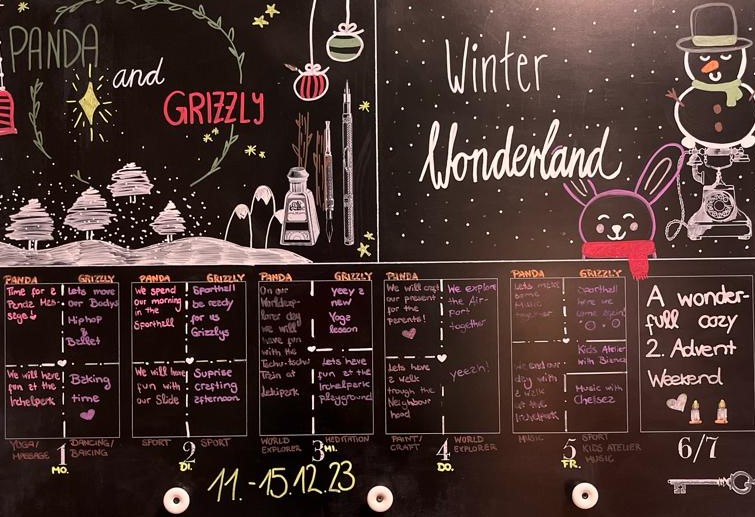 PANDA
and
GRIZZLY
Winter
Wonderland
PANDA
Time for a
Panda Mas-
sage
We will have
fun at the
Irchelpark
YOGA/
MASSAGE
GRIZZLY
Lets move
our Bodys
HipHop
&
Ballet
Baking
time
DANCING/
BAKING
1
MO.
PANDA
We spend
our morning
in the
Sporthall
We will have
fun with
our Slide
SPORT
GRIZZLY
Sporthall
be ready
for us
Grizzlys
Suprise
crafting
afternoon
SPORT
2
DI.
PANDA
On our
Worldexp-
lorer day
we will
have fun
with the
Tschu-tschu
Train at
WORLD
EXPLORER
GRIZZLY
yeey a
new
Yoga
lesson
Lets have
fun at the
Irchelpark
playground
MEDITATION
3
MI.
PANDA
We will craft
our present
for the
parents!
Lets have
a walk
trough the
Neighbour
hood
PAINT/
CRAFT
We explore
the Air-
port
together
yeezh!
WORLD
EXPLORER
4
DO.
PANDA
Lets make
some
Music
together
We end our
day with
a walk
at the
Irchelpark
MUSIC
GRIZZLY
Sporthall
here we
come again!
Kids Atelier
with Bianca
Music with
Chelsea
SPORT
KIDS ATELIER
MUSIC
5
FR.
A wonder-
full cozy
2. Advent
Weekend
6/7
11.-15.12.23